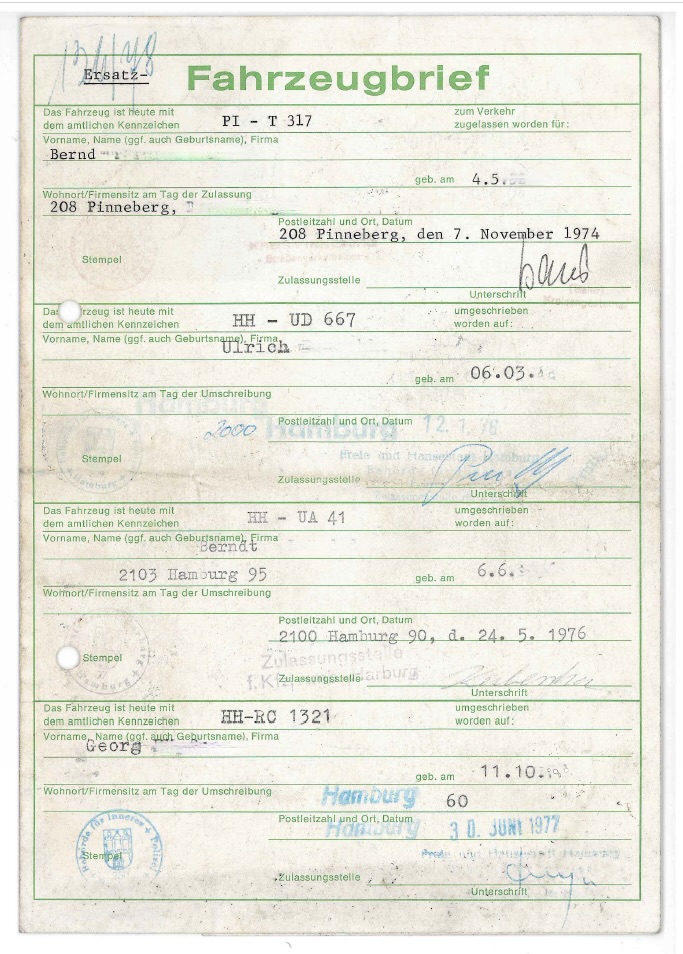 Ersatz-
Fahrzeugbrief
Das Fahrzeug ist heute mit
dem amtlichen Kennzeichen PI - T 317 zum Verkehr
zugelassen worden für:
Vorname, Name (ggf. auch Geburtsname), Firma
Bernd
geb. am 4.5.
Wohnort/Firmensitz am Tag der Zulassung
208 Pinneberg,
Postleitzahl und Ort, Datum
208 Pinneberg, den 7. November 1974
Stempel
Zulassungsstelle
Unterschrift
Das Fahrzeug ist heute mit
dem amtlichen Kennzeichen HH - UD 667 umgeschrieben
worden auf:
Vorname, Name (ggf. auch Geburtsname), Firma
Ulrich
geb. am 06.03.
Wohnort/Firmensitz am Tag der Umschreibung
Hamburg
Postleitzahl und Ort, Datum
2000 Hamburg 12. 1. 76
Freie und Hansestadt Hamburg
Stempel
Zulassungsstelle
Unterschrift
Das Fahrzeug ist heute mit
dem amtlichen Kennzeichen HH - UA 41 umgeschrieben
worden auf:
Vorname, Name (ggf. auch Geburtsname), Firma
Berndt
2103 Hamburg 95 geb. am 6.6.
Wohnort/Firmensitz am Tag der Umschreibung
Postleitzahl und Ort, Datum
2100 Hamburg 90, d. 24. 5. 1976
Stempel
Zulassungsstelle
f. Kfz. Harburg
Zulassungsstelle
Unterschrift
Das Fahrzeug ist heute mit
dem amtlichen Kennzeichen HH-RC 1321 umgeschrieben
worden auf:
Vorname, Name (ggf. auch Geburtsname), Firma
Georg
geb. am 11.10.
Wohnort/Firmensitz am Tag der Umschreibung
Hamburg 60
Postleitzahl und Ort, Datum
Hamburg 30. JUNI 1977
Freie und Hansestadt Hamburg
Behörde für Inneres + Polizei
Stempel
Zulassungsstelle
Unterschrift